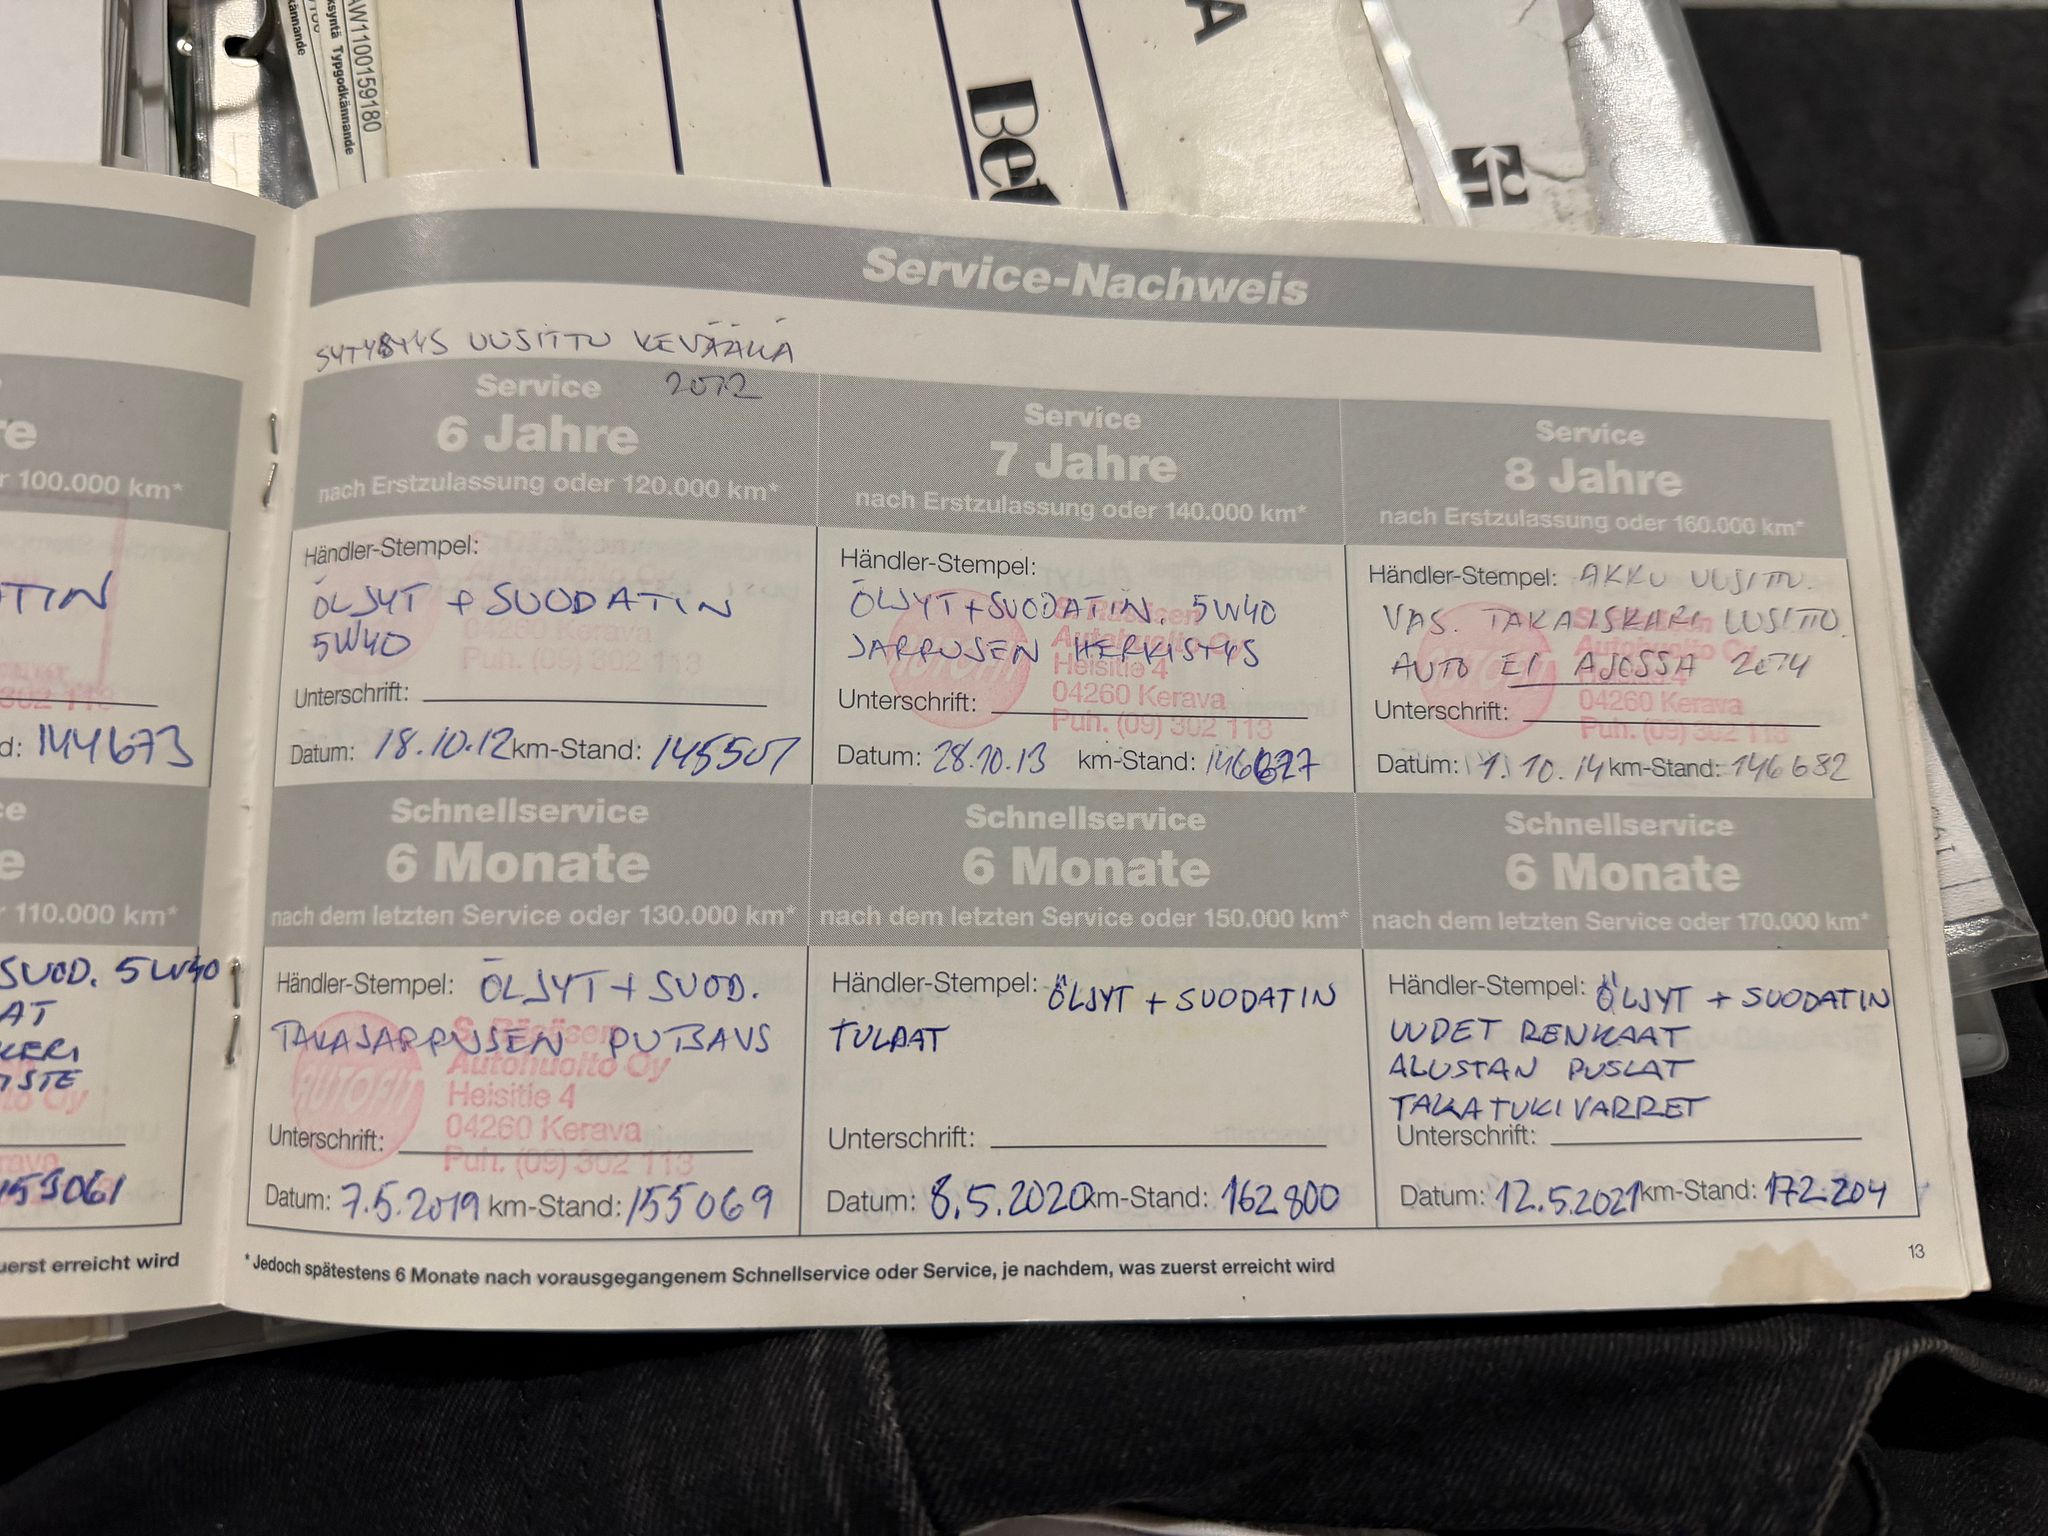 AW1100159180
ksyntä Typgodkännande
kännande
Bet
A
Service-Nachweis
SYTYSTYS UUSITTU KEVÄÄLLÄ
2012
Service
6 Jahre
nach Erstzulassung oder 120.000 km*
Händler-Stempel:
ÖLJYT + SUODATIN
5W40
04260 Kerava
Puh. (09) 302 113
Unterschrift:
Datum: 18.10.12 km-Stand: 145507
Service
7 Jahre
nach Erstzulassung oder 140.000 km*
Händler-Stempel:
ÖLJYT + SUODATIN. 5W40
JARRUJEN HERKISTYS
Autohuolto Oy
Heisitie 4
04260 Kerava
Puh. (09) 302 113
Unterschrift:
Datum: 28.10.13 km-Stand: 146627
Service
8 Jahre
nach Erstzulassung oder 160.000 km*
Händler-Stempel: AKKU UUSITTU.
VAS. TAKAISKARI UUSITTU.
AUTO EI AJOSSA 2014
04260 Kerava
Puh. (09) 302 113
Unterschrift:
Datum: 1.10.14 km-Stand: 146682
Schnellservice
6 Monate
nach dem letzten Service oder 130.000 km*
Händler-Stempel: ÖLJYT + SUOD.
TAKAJARRUJEN PUTSAUS
S. Räsäsen
Autohuolto Oy
AUTOFIT
Heisitie 4
04260 Kerava
Puh. (09) 302 113
Unterschrift:
Datum: 7.5.2019 km-Stand: 155069
Schnellservice
6 Monate
nach dem letzten Service oder 150.000 km*
Händler-Stempel: ÖLJYT + SUODATIN
TULPAT
Unterschrift:
Datum: 8.5.2020 km-Stand: 162800
Schnellservice
6 Monate
nach dem letzten Service oder 170.000 km*
Händler-Stempel: ÖLJYT + SUODATIN
UUDET RENKAAT
ALUSTAN PUSLAT
TAKATUKIVARRET
Unterschrift:
Datum: 12.5.2021 km-Stand: 172.204
* Jedoch spätestens 6 Monate nach vorausgegangenem Schnellservice oder Service, je nachdem, was zuerst erreicht wird
13
re
r 100.000 km*
TIN
302 113
d: 144673
ce
e
r 110.000 km*
SUOD. 5W40
AT
KERI
ISTE
153061
uerst erreicht wird